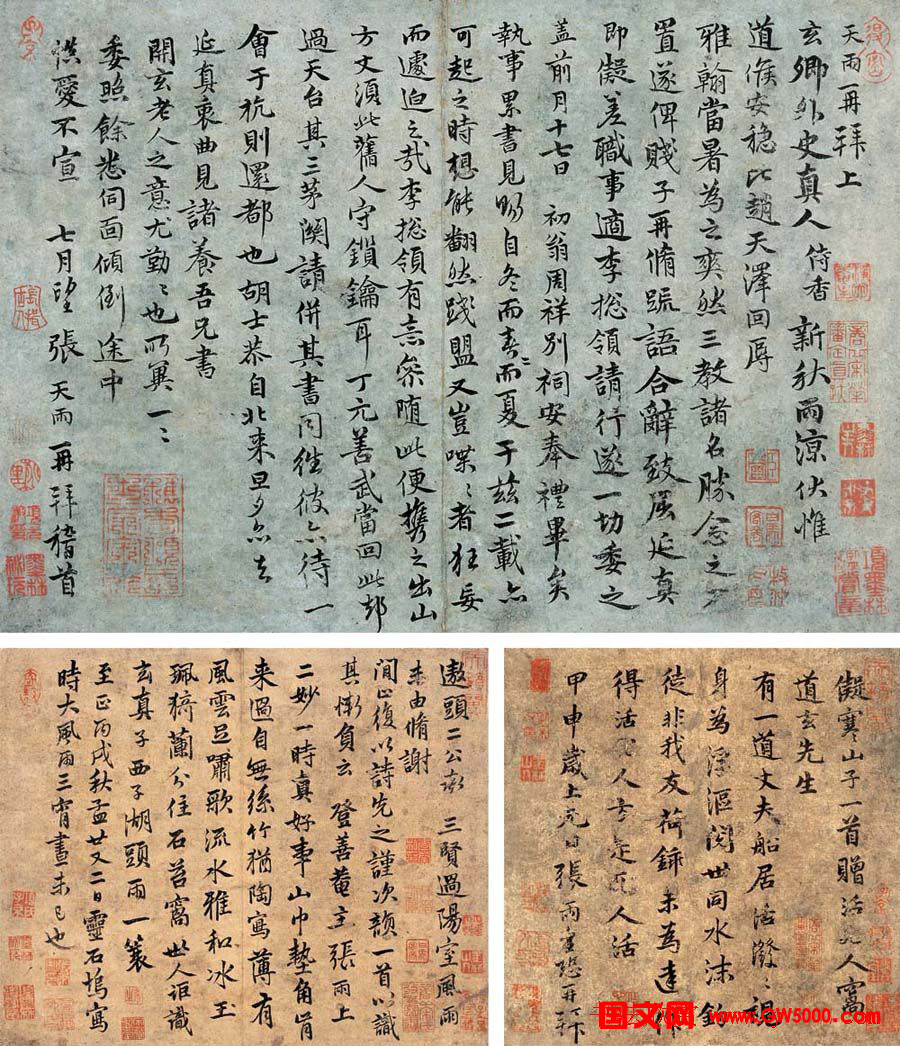 天雨再拜上
玄卿外史真人侍香新秋雨涼伏惟
道候安穩比趙天澤回辱
雅翰當暑為之爽然三教諸名勝念之
置遂俾賤子再脩疏語合辭致屈延真
即擬差職事適李總領請行遂一切委之
蓋前月十七日初翁周祥別祠安奉禮畢矣
執事累書見賜自冬而春而夏于茲二載亦
可起之時想能翻然踐盟又豈喋喋者狂妄
而遽迫之哉李總領有志參隨此便攜之出山
方丈須此舊人守鎖鑰耳丁元善武當回此却
過天台其三茅闕請併其書同往彼亦待一
會于杭則還都也胡士恭自北來旦夕亦去
延真衷曲見諸養吾兄書
開玄老人之意尤勤勤也所冀一一
委照餘悉伺面傾倒途中
愛不宣 七月望張天雨再拜稽首
遨頭二公 三賢過陽室風雨
未由脩謝
間止復以詩先之謹次韻一首以識
其慚負云 登善菴主張雨上
二妙一時真好事山巾墊角肯
來過自無絲竹猶陶寫薄有
風雲足嘯歌流水雅和冰玉
珮猗蘭分住石苔窩世人詎識
玄真子西子湖頭雨一蓑
至正丙戌秋孟廿又二日靈石塢寫
時大風雨三宵晝未已也
擬寒山子一首贈活死人窩
道玄先生
有一道丈夫船居活潑潑視
身為浮漚閱世同水沫釣
徒非我友荷鍤未為達作
得活死人方是死人活
甲申歲上元日張雨 再拜
国文网 www.GW5000.com